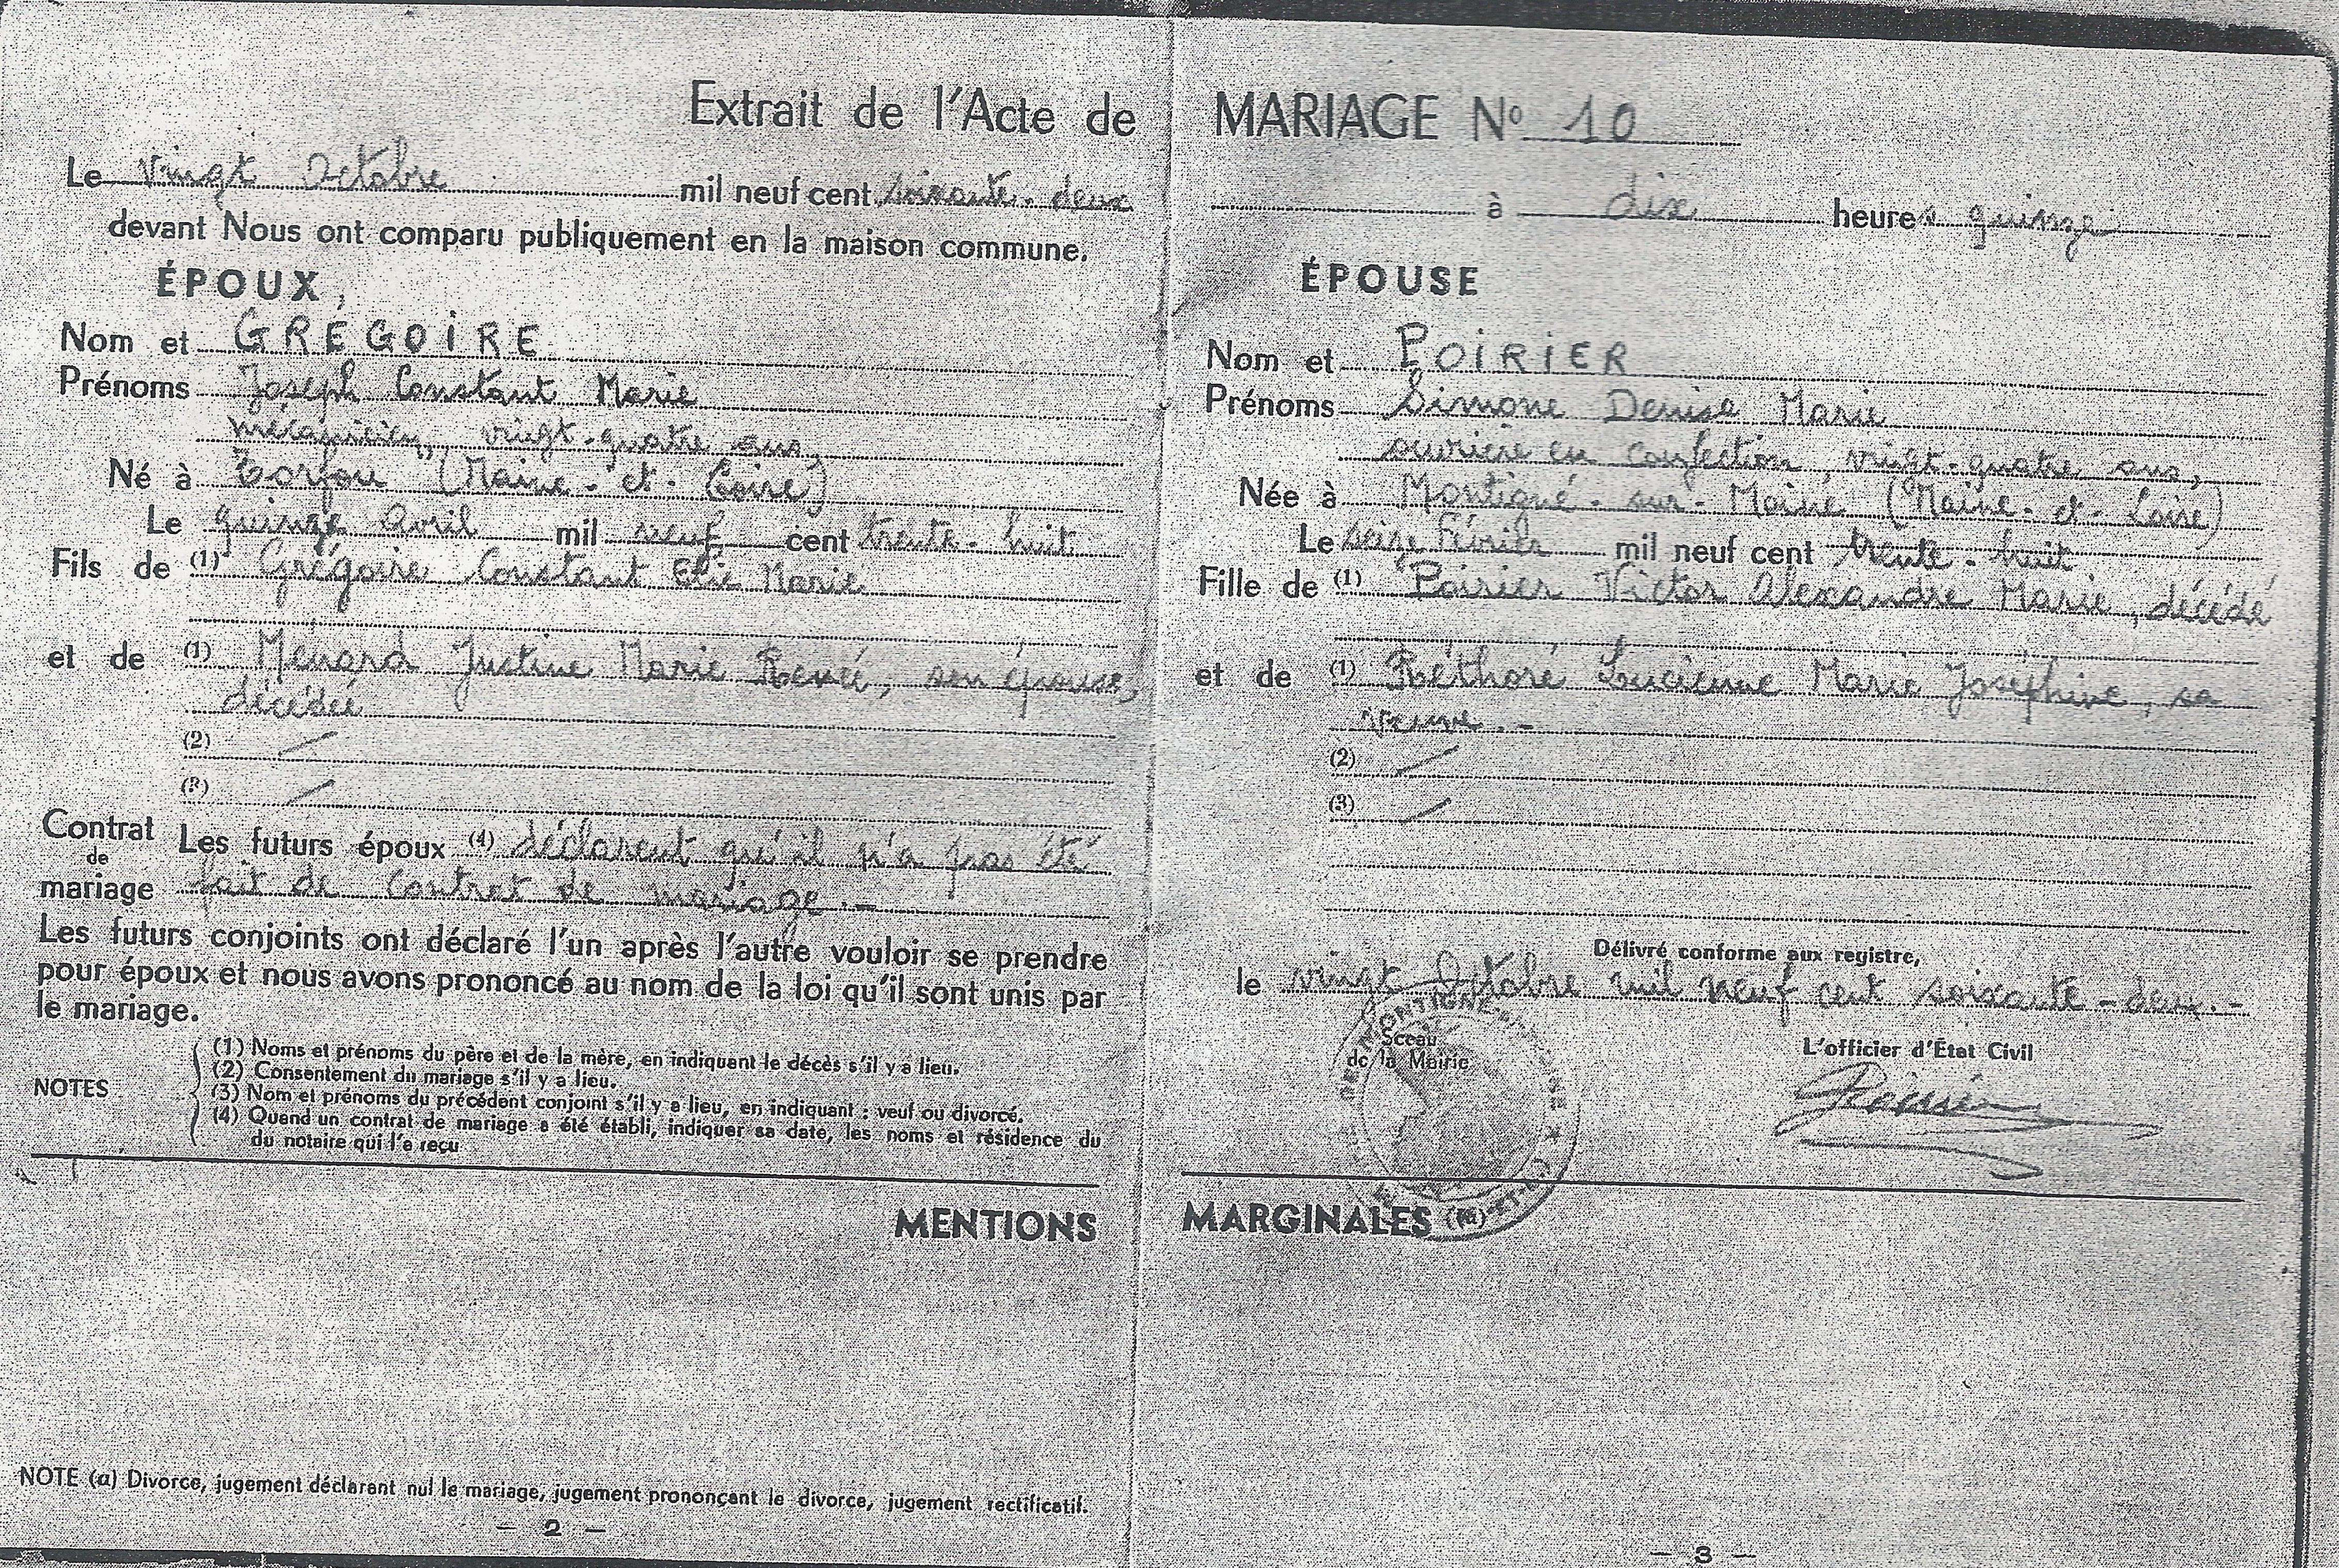 Extrait de l'Acte de MARIAGE No 10
Le vingt Octobre mil neuf cent soixante-deux à dix heures quinze
devant Nous ont comparu publiquement en la maison commune.
ÉPOUX
Nom et GRÉGOIRE
Prénoms Joseph Constant Marie
mécanicien, vingt-quatre ans,
Né à Torfou (Maine-et-Loire)
Le quinze Avril mil neuf cent trente-huit
Fils de (1) Grégoire Constant Elie Marie
et de (1) Ménard Justine Marie Renée, son épouse,
décédée
(2) /
(3) /
Contrat de mariage Les futurs époux (4) déclarent qu'il n'a pas été
fait de contrat de mariage.-
Les futurs conjoints ont déclaré l'un après l'autre vouloir se prendre
pour époux et nous avons prononcé au nom de la loi qu'il sont unis par
le mariage.
NOTES
(1) Noms et prénoms du père et de la mère, en indiquant le décès s'il y a lieu.
(2) Consentement du mariage s'il y a lieu.
(3) Nom et prénoms du précédent conjoint s'il y a lieu, en indiquant : veuf ou divorcé.
(4) Quand un contrat de mariage a été établi, indiquer sa date, les noms et résidence du
du notaire qui l'a reçu
ÉPOUSE
Nom et POIRIER
Prénoms Simone Denise Marie
ouvrière en confection, vingt-quatre ans,
Née à Montigné-sur-Moine (Maine-et-Loire)
Le seize Février mil neuf cent trente-huit
Fille de (1) Poirier Victor Alexandre Marie, décédé
et de (1) Réthoré Lucienne Marie Joséphine, sa
veuve.-
(2) /
(3) /
Délivré conforme aux registre,
le vingt Octobre mil neuf cent soixante-deux.-
Sceau
de la Mairie
L'officier d'État Civil
MENTIONS MARGINALES (a)
NOTE (a) Divorce, jugement déclarant nul le mariage, jugement prononçant le divorce, jugement rectificatif.
— 2 —
— 3 —